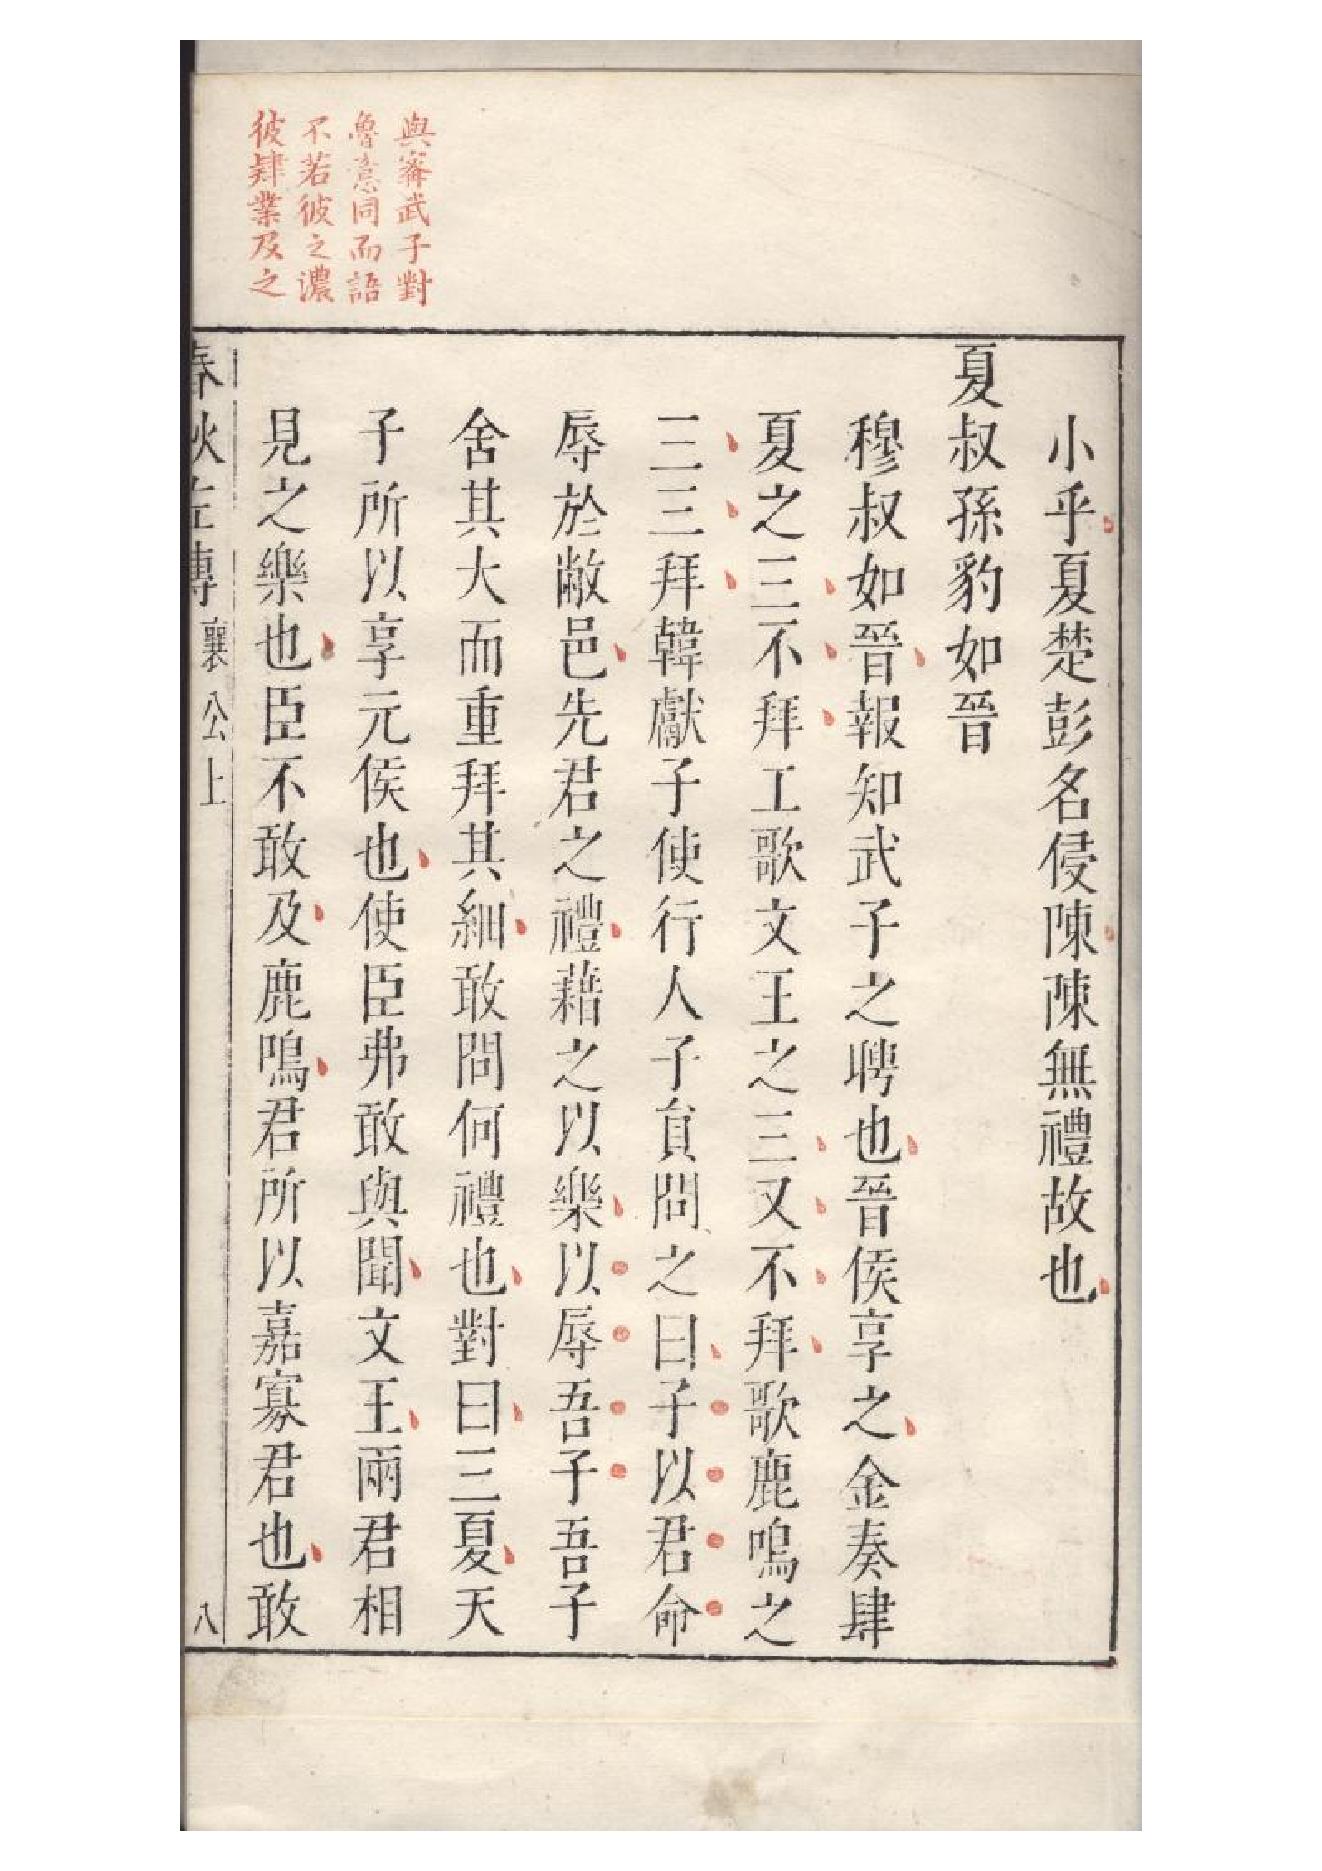 與甯武子對
魯意同而語
不若彼之濃
彼肄業及之
小乎夏楚彭名侵陳陳無禮故也
夏叔孫豹如晉
穆叔如晉報知武子之聘也晉侯享之金奏肆
夏之三不拜工歌文王之三又不拜歌鹿鳴之
三三拜韓獻子使行人子員問之曰子以君命
辱於敝邑先君之禮藉之以樂以辱吾子吾子
舍其大而重拜其細敢問何禮也對曰三夏天
子所以享元侯也使臣弗敢與聞文王兩君相
見之樂也臣不敢及鹿鳴君所以嘉寡君也敢
春秋左傳 襄公上 八